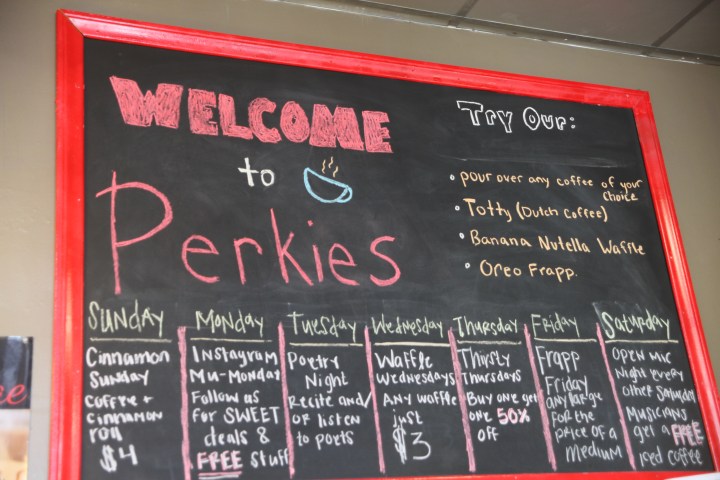 WELCOME
to
Perkies
Try Our:
• pour over any coffee of your
choice
• Totty (Dutch Coffee)
• Banana Nutella Waffle
• Oreo Frapp.
SUNDAY
Cinnamon
Sunday
coffee +
cinnamon
roll
$4
MONDAY
Instagram
Mu-Monday
Follow us
for SWEET
deals &
FREE stuff
Tuesday
Poetry
Night
Recite and/
or listen
to poets
Wednesday
Waffle
Wednesdays
Any waffle
just
$3
Thursday
Thirsty
Thursdays
Buy one get
one 50%
off
Friday
Frapp
Friday
any large
for the
price of a
medium
Saturday
Open mic
Night every
other Saturday
Musicians
get a FREE
iced coffee